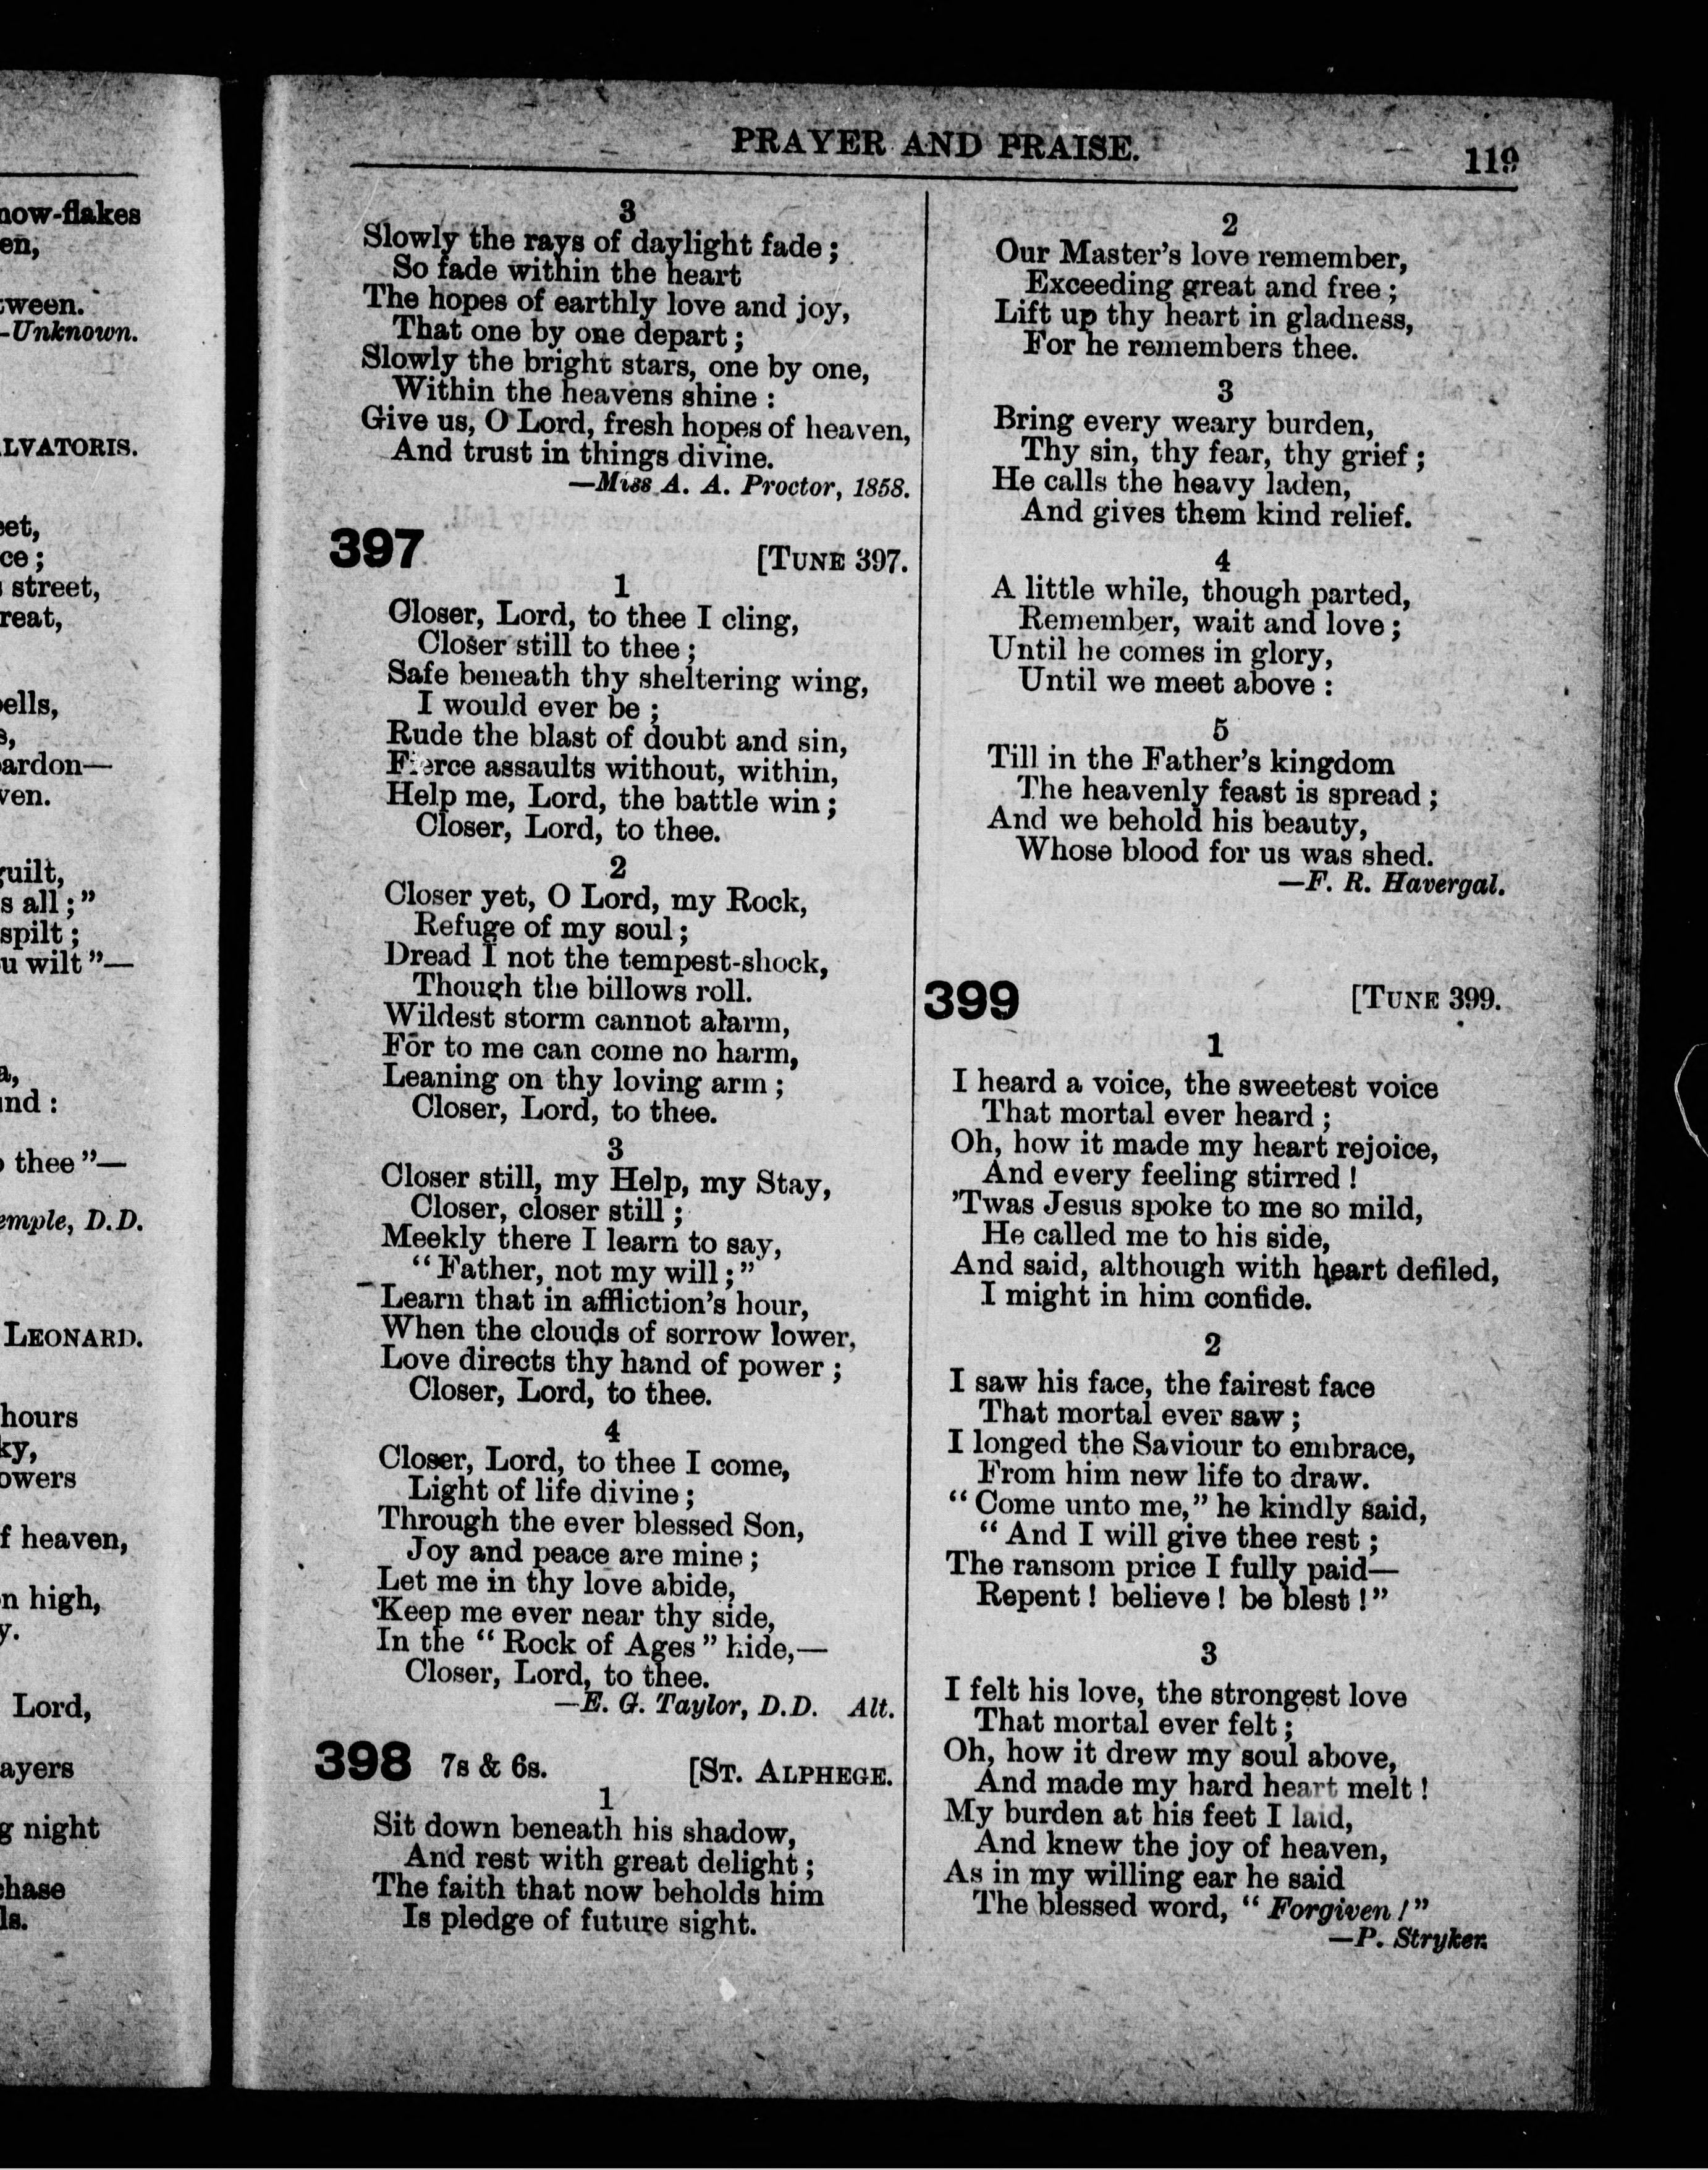 now-flakes
en,
tween.
-Unknown.
LVATORIS.
eet,
ce;
street,
reat,
ells,
s,
ardon—
ven.
uilt,
s all;"
spilt;
u wilt"—
a,
nd:
thee"—
emple, D.D.
LEONARD.
hours
ky,
owers
f heaven,
n high,
y.
Lord,
ayers
g night
hase
ls.
PRAYER AND PRAISE.
119
3
Slowly the rays of daylight fade;
So fade within the heart
The hopes of earthly love and joy,
That one by one depart;
Slowly the bright stars, one by one,
Within the heavens shine:
Give us, O Lord, fresh hopes of heaven,
And trust in things divine.
—Miss A. A. Proctor, 1858.
397 [TUNE 397.
1
Closer, Lord, to thee I cling,
Closer still to thee;
Safe beneath thy sheltering wing,
I would ever be;
Rude the blast of doubt and sin,
Fierce assaults without, within,
Help me, Lord, the battle win;
Closer, Lord, to thee.
2
Closer yet, O Lord, my Rock,
Refuge of my soul;
Dread I not the tempest-shock,
Though the billows roll.
Wildest storm cannot alarm,
For to me can come no harm,
Leaning on thy loving arm;
Closer, Lord, to thee.
3
Closer still, my Help, my Stay,
Closer, closer still;
Meekly there I learn to say,
"Father, not my will;"
Learn that in affliction's hour,
When the clouds of sorrow lower,
Love directs thy hand of power;
Closer, Lord, to thee.
4
Closer, Lord, to thee I come,
Light of life divine;
Through the ever blessed Son,
Joy and peace are mine;
Let me in thy love abide,
Keep me ever near thy side,
In the "Rock of Ages" hide,—
Closer, Lord, to thee.
—E. G. Taylor, D.D. Alt.
398 7s & 6s. [ST. ALPHEGE.
1
Sit down beneath his shadow,
And rest with great delight;
The faith that now beholds him
Is pledge of future sight.
2
Our Master's love remember,
Exceeding great and free;
Lift up thy heart in gladness,
For he remembers thee.
3
Bring every weary burden,
Thy sin, thy fear, thy grief;
He calls the heavy laden,
And gives them kind relief.
4
A little while, though parted,
Remember, wait and love;
Until he comes in glory,
Until we meet above:
5
Till in the Father's kingdom
The heavenly feast is spread;
And we behold his beauty,
Whose blood for us was shed.
—F. R. Havergal.
399 [TUNE 399.
1
I heard a voice, the sweetest voice
That mortal ever heard;
Oh, how it made my heart rejoice,
And every feeling stirred!
'Twas Jesus spoke to me so mild,
He called me to his side,
And said, although with heart defiled,
I might in him confide.
2
I saw his face, the fairest face
That mortal ever saw;
I longed the Saviour to embrace,
From him new life to draw.
"Come unto me," he kindly said,
"And I will give thee rest;
The ransom price I fully paid—
Repent! believe! be blest!"
3
I felt his love, the strongest love
That mortal ever felt;
Oh, how it drew my soul above,
And made my hard heart melt!
My burden at his feet I laid,
And knew the joy of heaven,
As in my willing ear he said
The blessed word, "Forgiven!"
—P. Stryker.